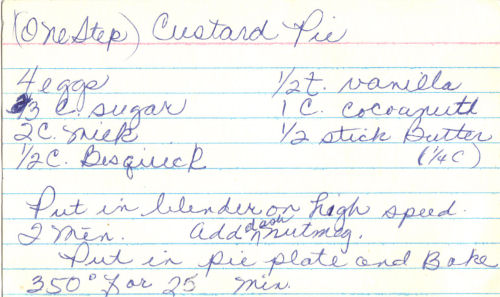 (One Step) Custard Pie
4 eggs 1/2 t. vanilla
2/3 C. sugar 1 C. cocoanutt
2 C. milk 1/2 stick Butter
1/2 C. Bisquick (1/4 C)
Put in blender on high speed.
2 min. add dash nutmeg.
Put in pie plate and Bake
350° for 25 min.